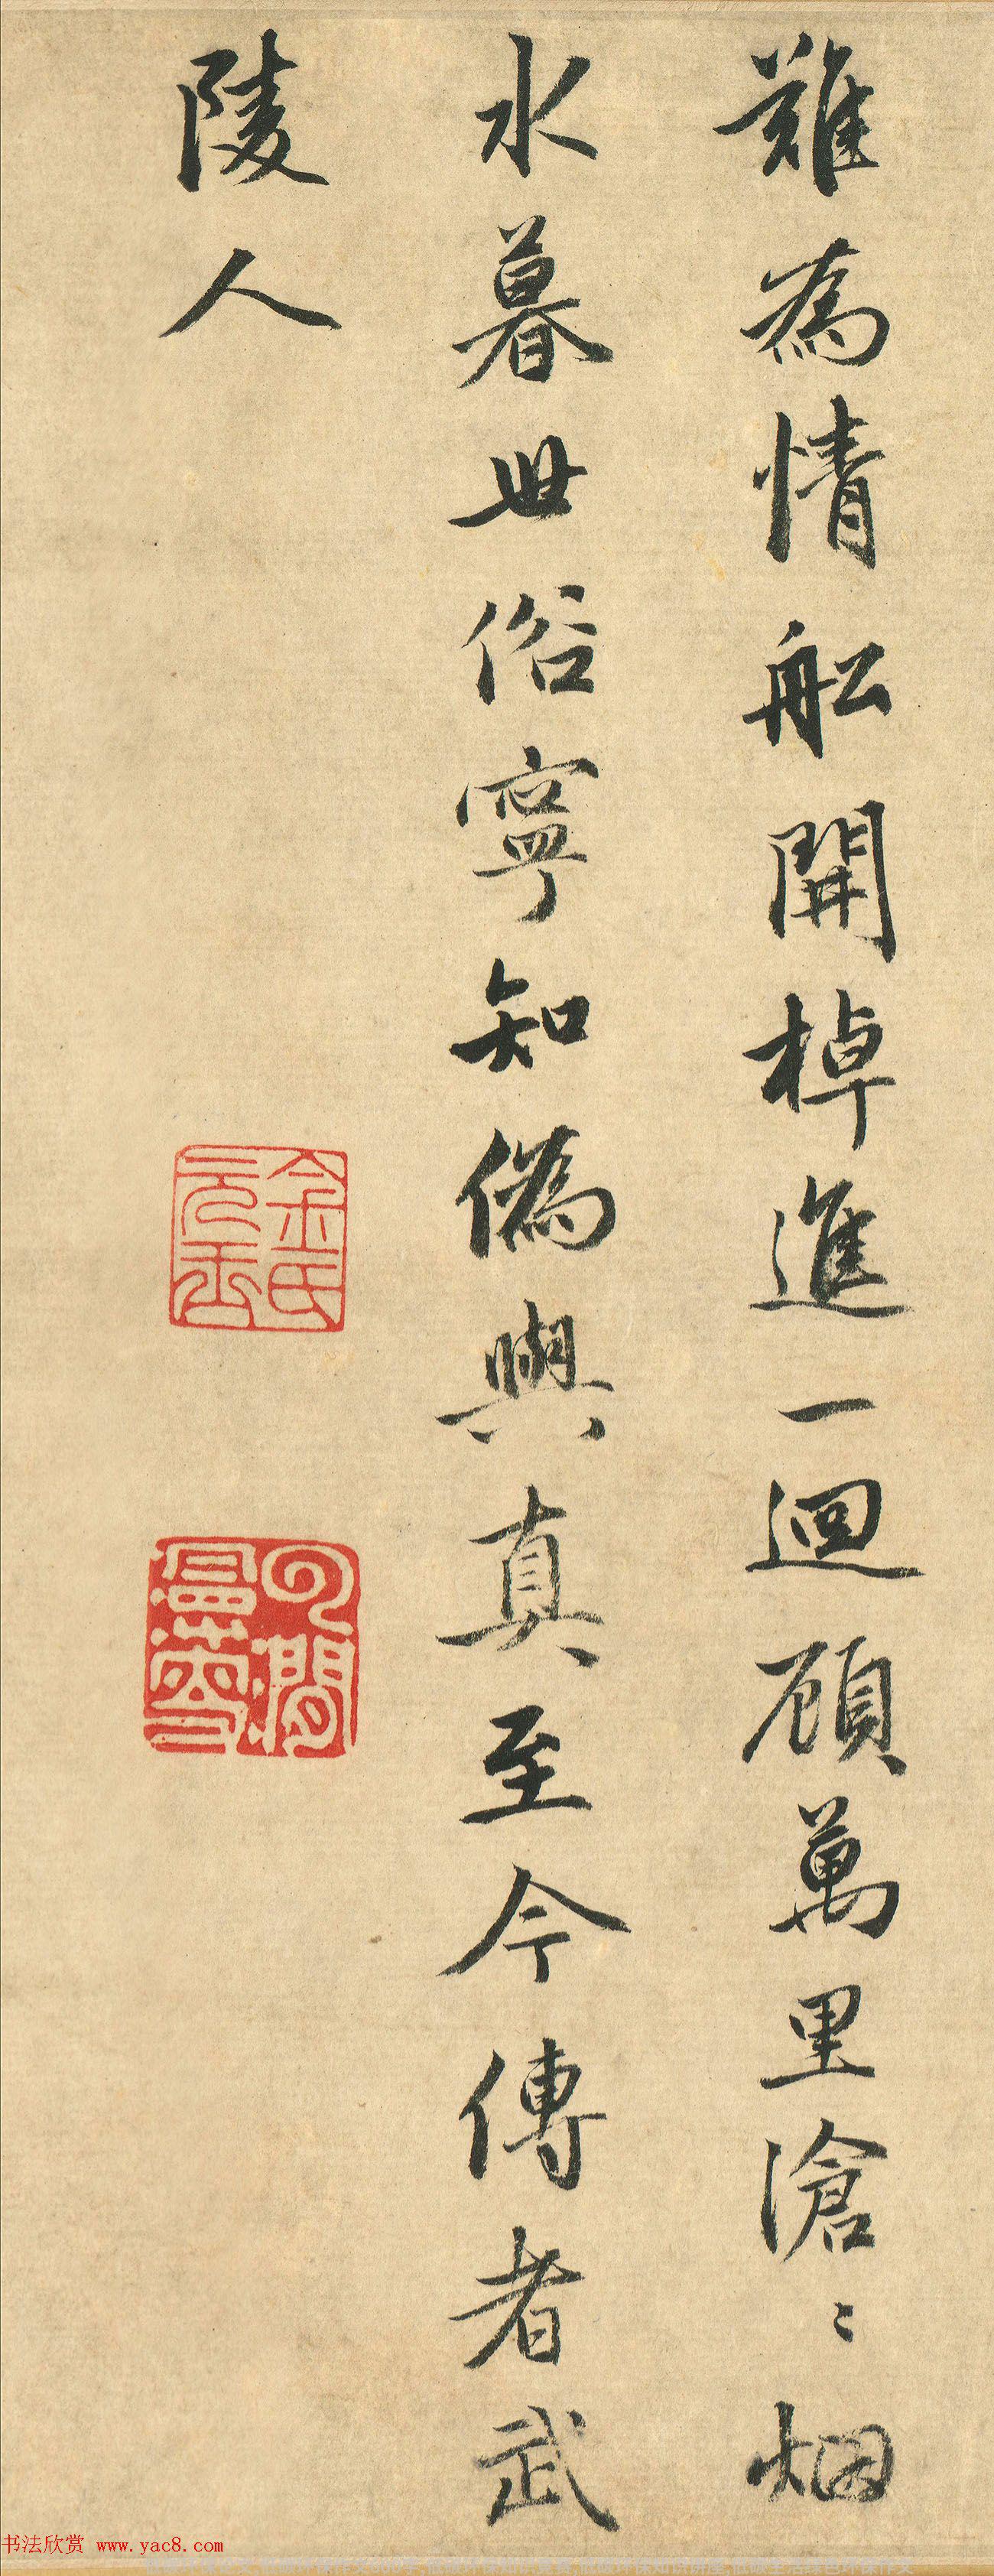 難為情船開棹進一迴顧萬里滄〻烟
水暮世俗寧知偽與真至今傳者武
陵人
金氏元玉
书法欣赏 www.yac8.com